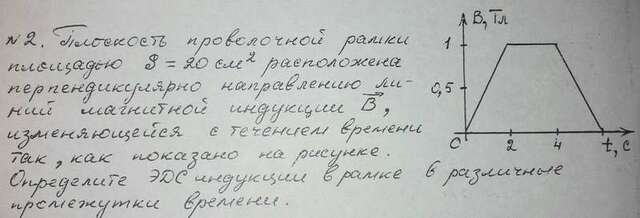 №2. Плоскость проволочной рамки
площадью S = 20 см² расположена
перпендикулярно направлению ли-
ний магнитной индукции B⃗,
изменяющейся с течением времени
так, как показано на рисунке.
Определите ЭДС индукции в рамке в различные
промежутки времени.
B, Тл
1
0,5
0
2
4
t, c